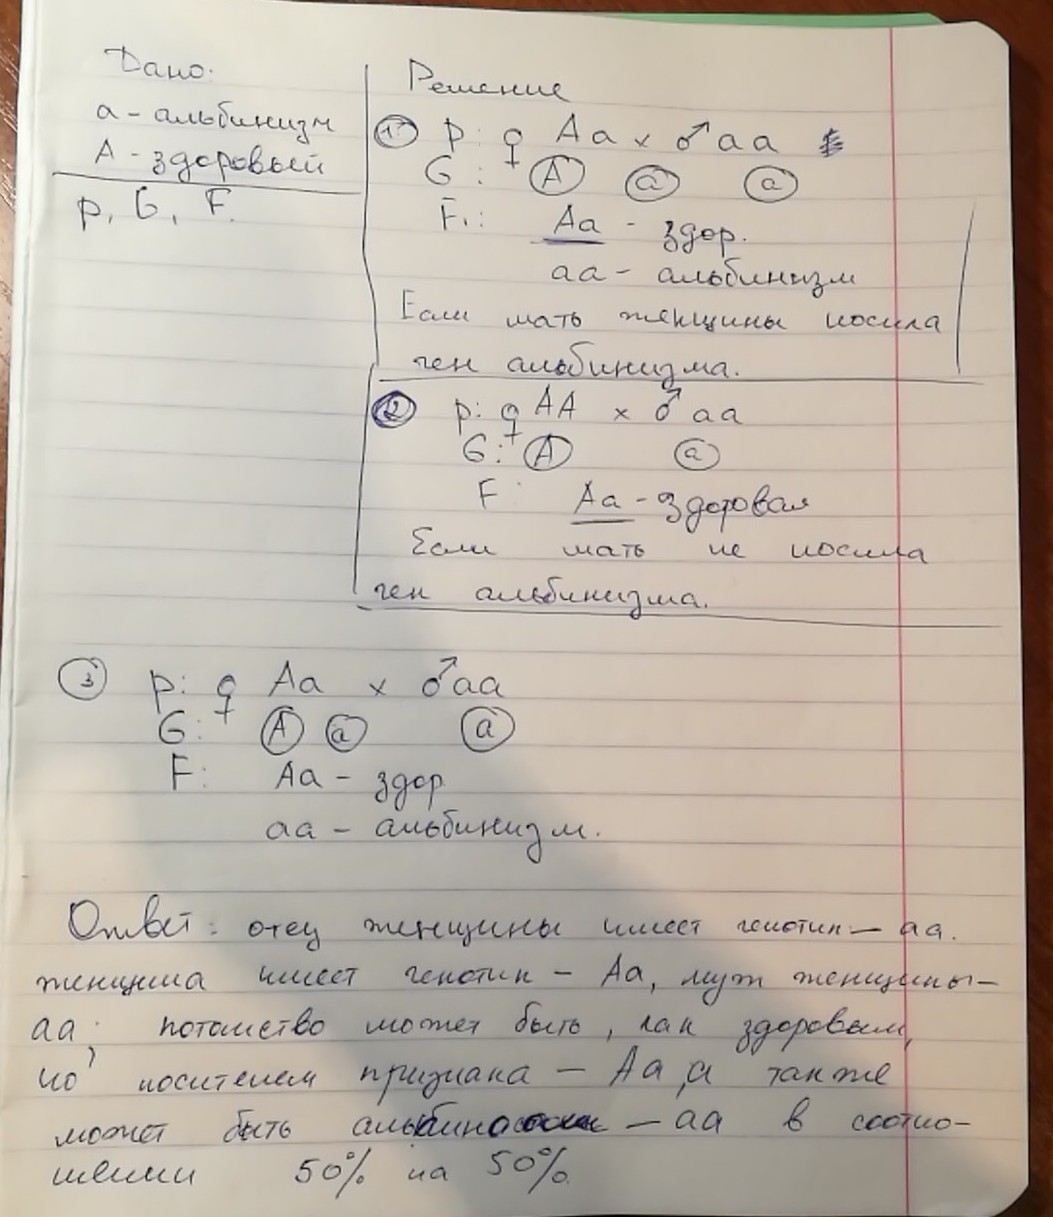 Дано:
а - альбинизм
А - здоровый
P, G, F.
Решение
1 P: ♀ Aa x ♂ aa
G: A a a
F₁: Aa - здор.
aa - альбинизм
Если мать женщины носила
ген альбинизма.
2 P: ♀ AA x ♂ aa
G: A a
F: Aa - здоровая
Если мать не носила
ген альбинизма.
3 P: ♀ Aa x ♂ aa
G: A a a
F: Aa - здор
aa - альбинизм.
Ответ: отец женщины имеет генотип - aa.
женщина имеет генотип - Aa, муж женщины -
aa; потомство может быть, как здоровым,
но носителем признака - Aa, а также
может быть - aa в соотно-
шении 50% на 50%.